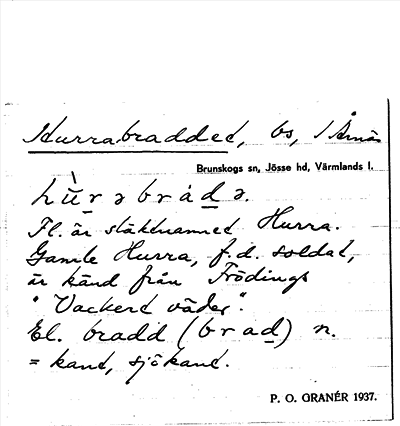 Hurrabraddet, bs, i Årnäs
Brunskogs sn, Jösse hd, Värmlands l.
hùrəbràdə.
Fl. är släktnamnet Hurra.
Gamle Hurra, f.d. soldat,
är känd från Frödings
"Vackert väder".
El. bradd (brad) n.
= kant, sjökant.
P. O. GRANÉR 1937.